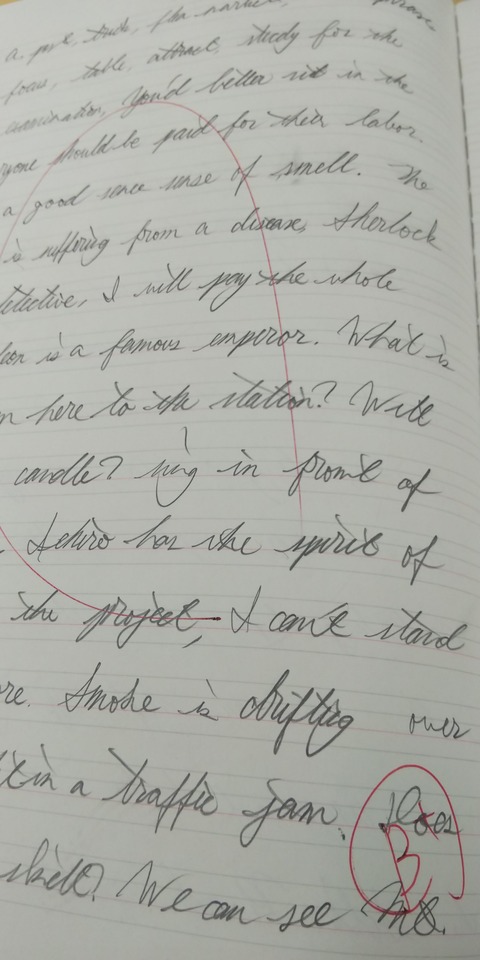 a
focus, table, attract, study for the
examination, You'd better sit in the
ryone should be paid for their labor.
a good sence sense of smell. The
is suffering from a disease, Sherlock
detective, I will pay the whole
leon is a famous emperor. What is
m here to the station? Will
candle? sing in front of
. Ichiro has the spirit of
the project, I can't stand
re. Smoke is drifting over
t in a traffic jam. Does
skill? We can see Mt.
B